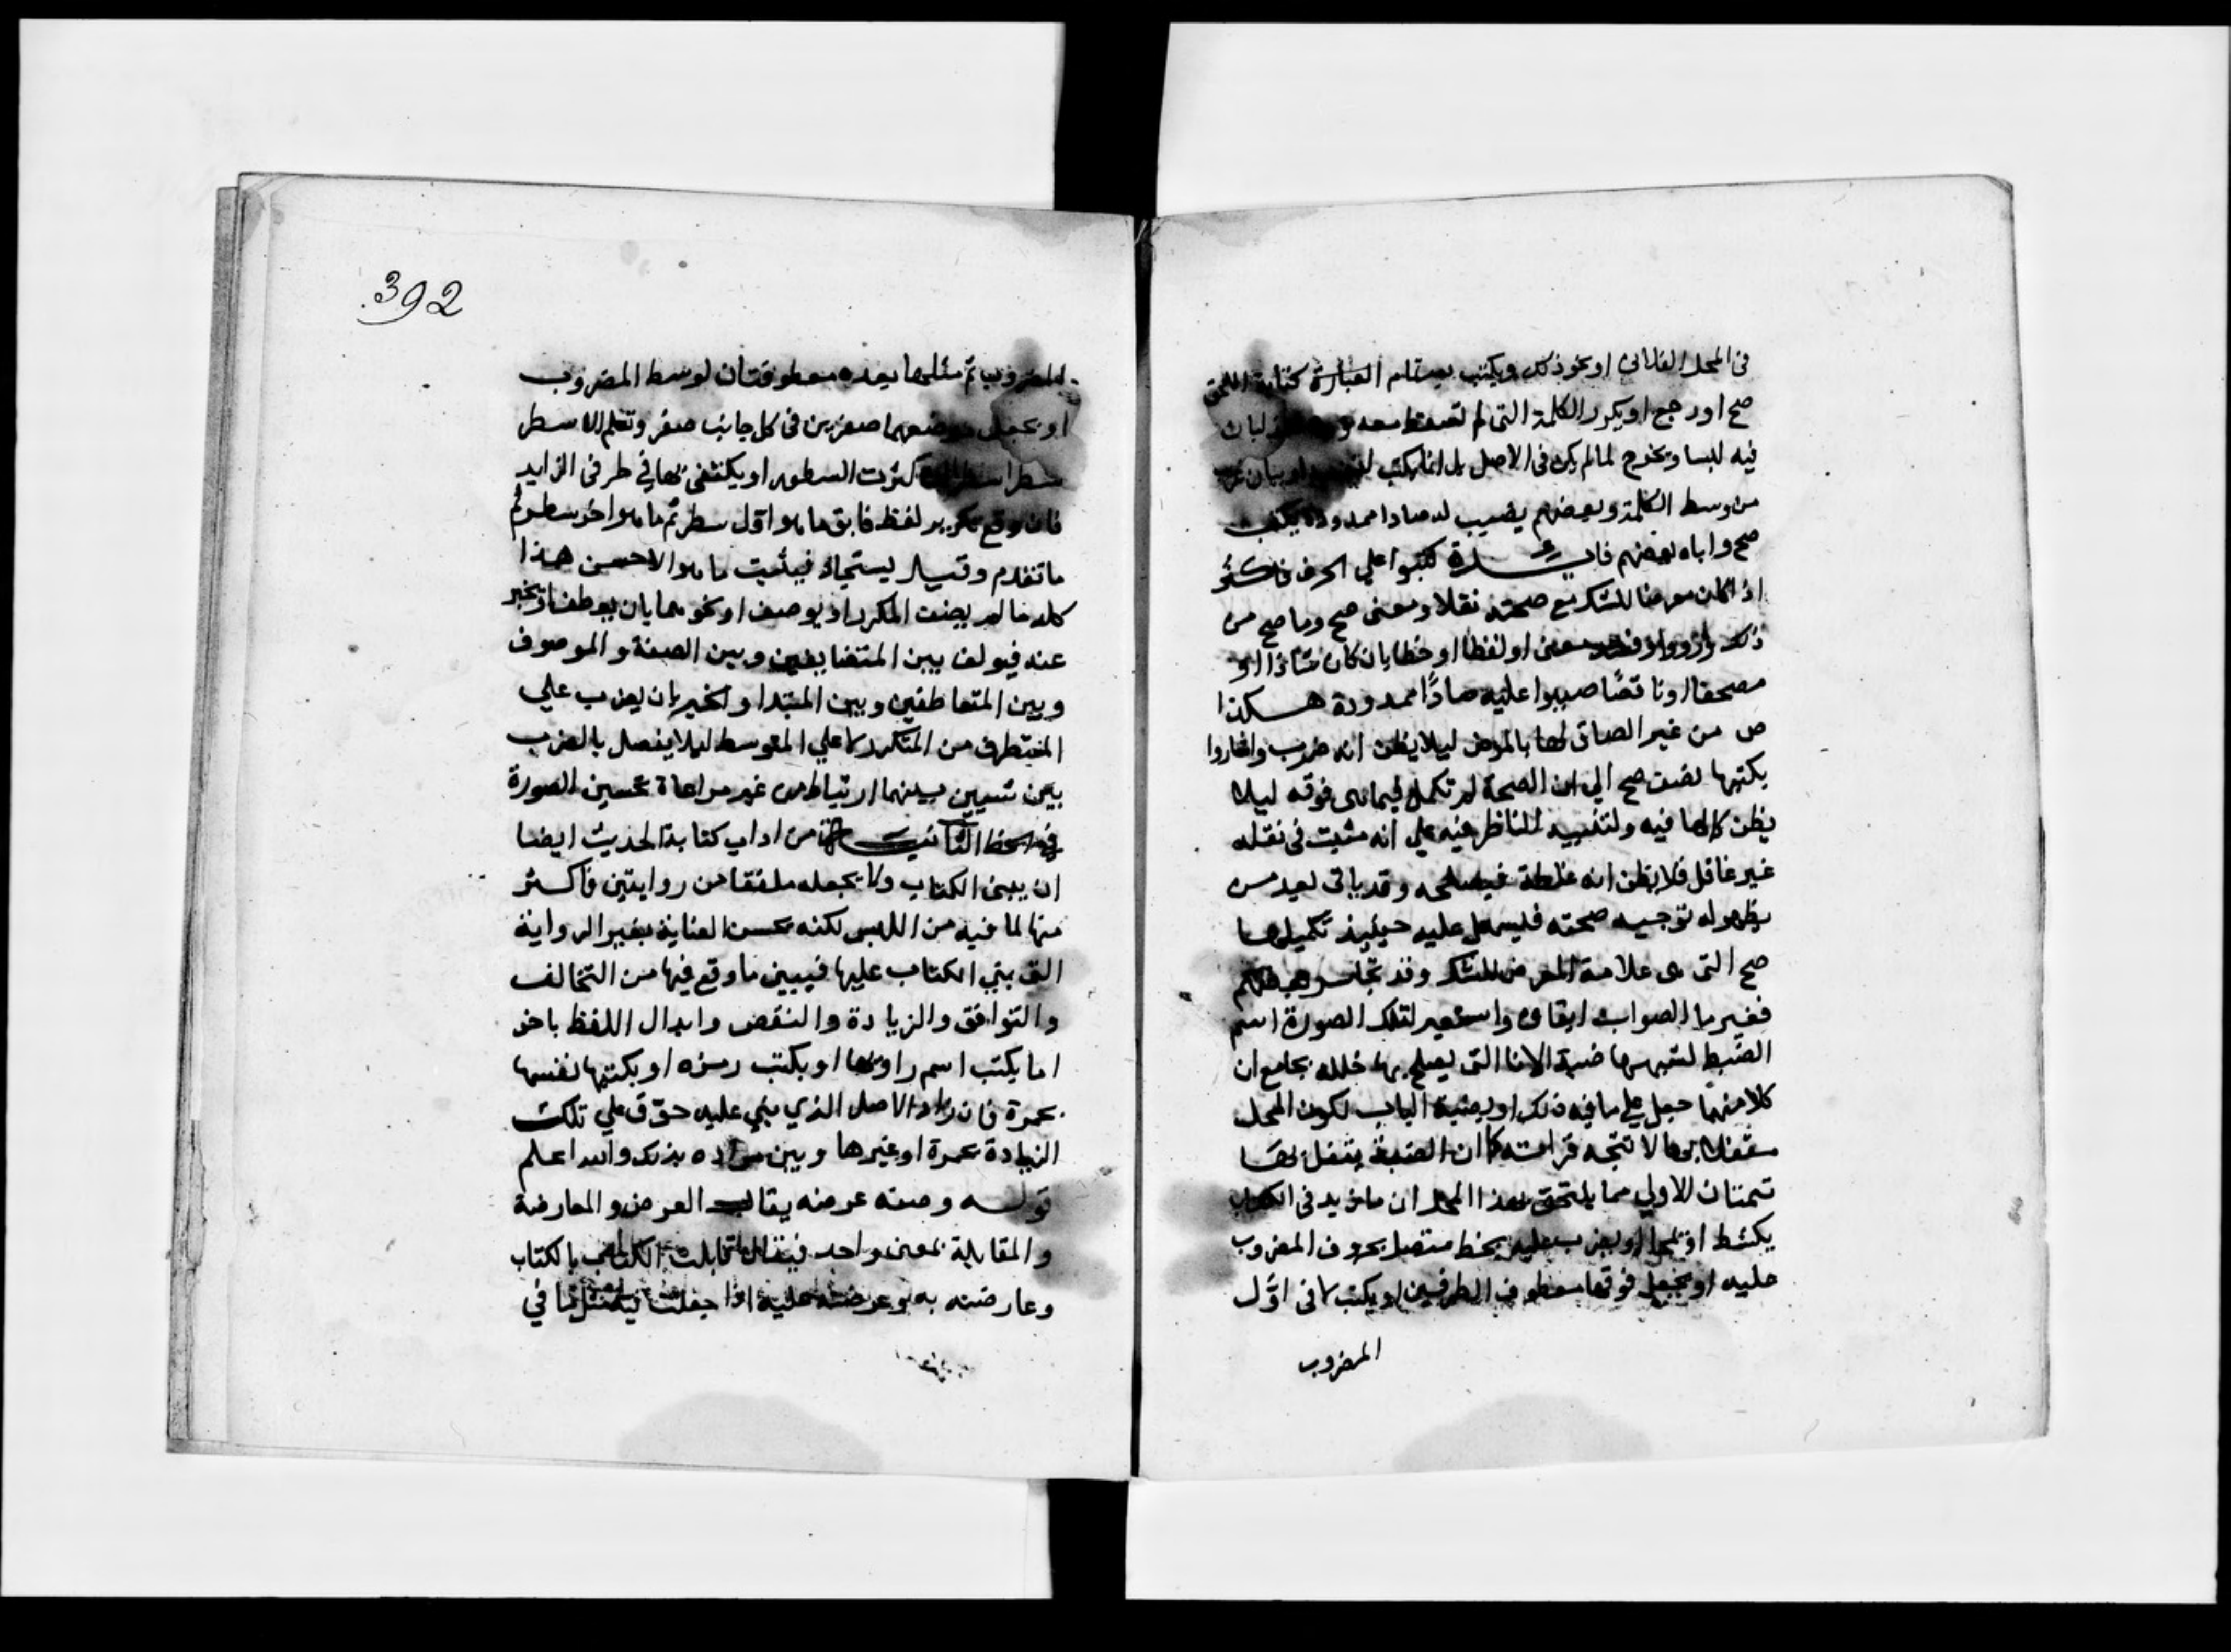 في المحل الفلاني او نحو ذلك ويكتب بعد تمام العبارة كتابة اللحق
صح او رجع او يكرر الكلمة التي لم تسقط معه
فيه لبسا ويخرج لما لم يكن في الاصل بل انما يكتب او بيان غريب
من وسط الكلمة وبعضهم يضبب له صادا ممدودة يكتب
صح واباه بعضهم كتبوا علي الحرف
اذا كان معرضا للشك مع صحته نقلا ومعنى صح وما صح من
ذلك معنى او لفظا او خطا بان كان شاذا او
مصحفا او ناقصا ضببوا عليه صادا ممدودة هكذا
ص من غير الصاق لها بالعرض ليلا يظن انه ضرب واشاروا
بكتبها نصف صح الي ان الصحة لم تكمل فيما هى فوقه ليلا
يظن كمالها فيه ولتنبيه الناظر فيه علي انه مثبت في نقله
غير غافل فلا يظن انه غلطة فيصلحه وقد ياتي بعد من
يظهر له توجيه صحته فيسهل عليه حينيذ تكميلها
صح التي هى علامة المعرض للشك وقد تجاسر بعضهم
فغير ما الصواب ابقاوه واستعير لتلك الصورة اسم
الضبط لشبهها ضبة الانا التي يصلح بها خلله بجامع ان
كلا منهما جعل علي ما فيه خلل او بضبة الباب لكون المحل
مقفلا بها لا تتجه قراءته كما ان الضبة يقفل بها
تتمتان الاولي مما يلتحق بهذا المحل ان ما زيد في الكتاب
يكشط او يمحا او يضرب عليه بخط متصل بحروف المضروب
عليه او يجعل فوقها معطوف الطرفين او يكتب لا في اول
المضروب
392
المضروب ثم مثلها بعده معطوفتان لوسط المضروب
او يجعل موضعهما صفرين في كل جانب صفر وتعلم الاسطر
سطرا سطرا اذا كثرت السطور او يكتفى بها في طرفي الزايد
فان وقع تكرير لفظ فابق ما هو اول سطر ثم ما هو اخر سطر ثم
ما تقدم وقيل يستجاد فيثبت ما هو الاحسن هذا
كله ما لم يضف المكرر او يوصف او نحوهما بان يعطف او يخبر
عنه فيولف بين المتضايفين وبين الصفة والموصوف
وبين المتعاطفين وبين المبتدا والخبر بان يضرب علي
المتطرف من المتكرر لا علي المتوسط ليلا يفصل بالضرب
بين شيين بينهما ارتباط من غير مراعاة تحسين الصورة
في الخط الثانية من اداب كتابة الحديث ايضا
ان يبنى الكتاب ولا يجعله ملفقا من روايتين فاكثر
منها لما فيه من اللبس لكنه يحسن العناية بغير الرواية
التي بني الكتاب عليها فيبين ما وقع فيها من التخالف
والتوافق والزيادة والنقص وابدال اللفظ باخر
اما يكتب اسم راويها او يكتب رمزه او يكتبها نفسها
بحمرة فان زاد الاصل الذي بني عليه حوق علي تلك
الزيادة بحمرة او غيرها وبين مراده بذلك والله اعلم
قوله وصفه عرضه يقال العرض والمعارضة
والمقابلة بمعنى واحد فيقال قابلت الكتاب بالكتاب
وعارضته به وعرضته عليه اذا جعلت فيه مثل ما في